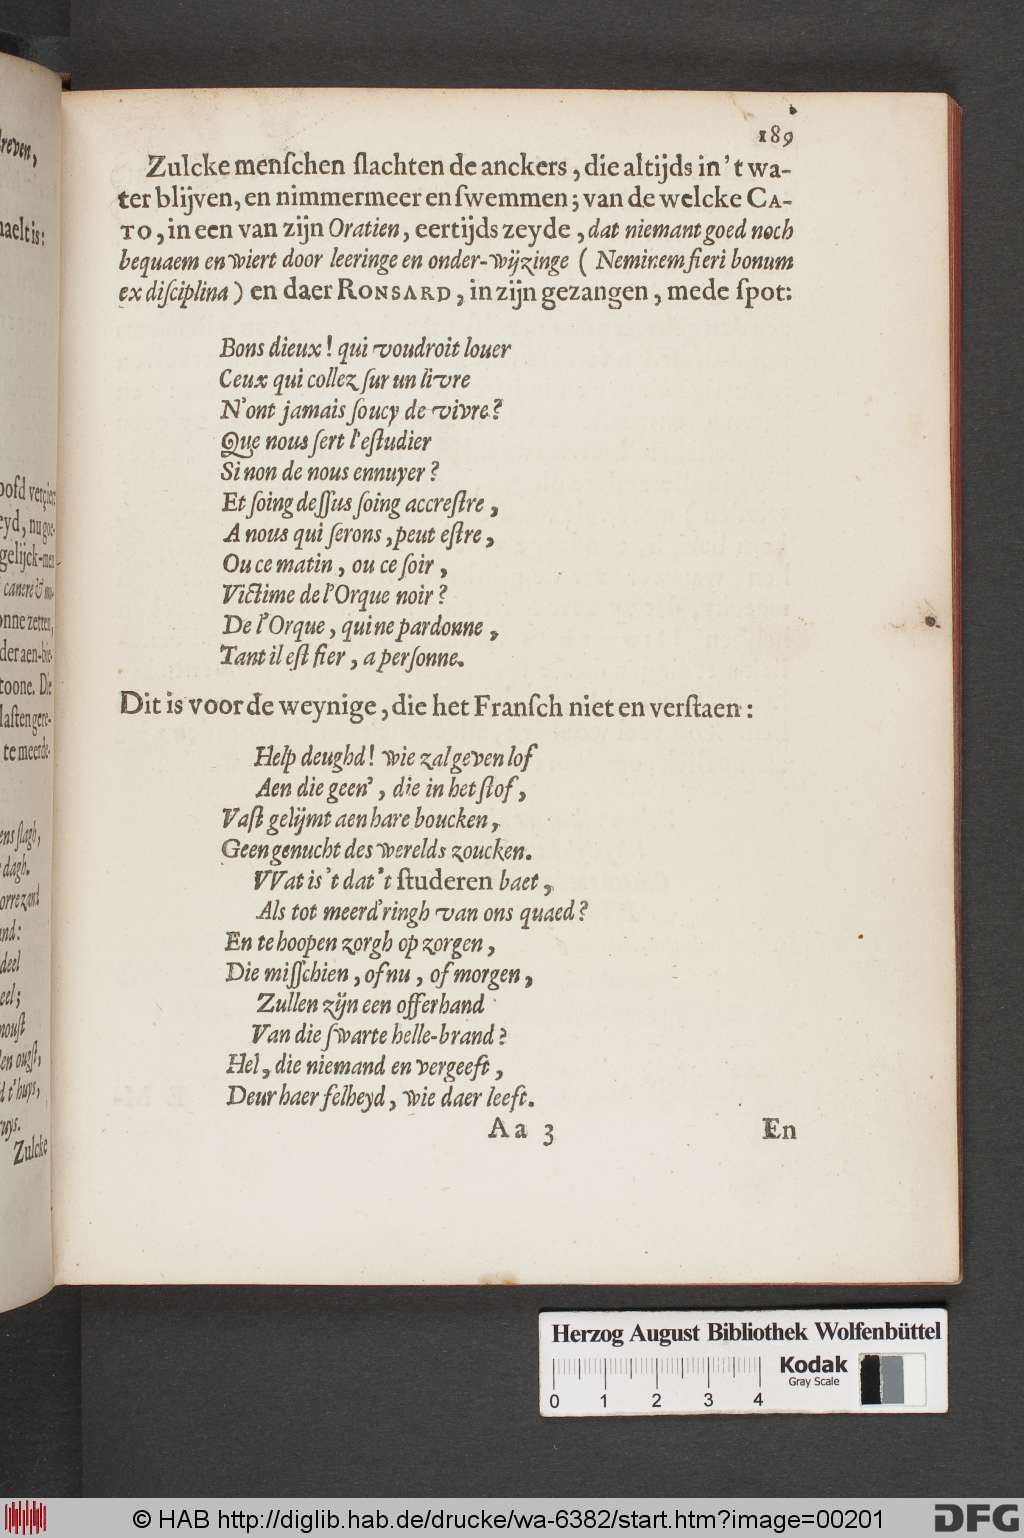 189
Zulcke menſchen ſlachten de anckers, die altijds in't wa-
ter blijven, en nimmermeer en ſwemmen; van de welcke CA-
TO, in een van zijn Oratien, eertijds zeyde, dat niemant goed noch
bequaem en wiert door leeringe en onder-wijzinge (Neminem fieri bonum
ex diſciplina) en daer RONSARD, in zijn gezangen, mede ſpot:
Bons dieux! qui voudroit louer
Ceux qui collez ſur un livre
N'ont jamais ſoucy de vivre?
Que nous ſert l'eſtudier
Si non de nous ennuyer?
Et ſoing deſſus ſoing accreſtre,
A nous qui ſerons, peut eſtre,
Ou ce matin, ou ce ſoir,
Victime de l'Orque noir?
De l'Orque, qui ne pardonne,
Tant il eſt fier, a perſonne.
Dit is voor de weynige, die het Franſch niet en verſtaen:
Help deughd! wie zal geven lof
Aen die geen', die in het ſtof,
Vaſt gelijmt aen hare boucken,
Geen genucht des werelds zoucken.
VVat is't dat't ſtuderen baet,
Als tot meerd'ringh van ons quaed?
En te hoopen zorgh op zorgen,
Die miſſchien, of nu, of morgen,
Zullen zijn een offerhand
Van die ſwarte helle-brand?
Hel, die niemand en vergeeft,
Deur haer felheyd, wie daer leeft.
Aa 3 En
reven,
aelt is:
oofd
eyd, nu goe-
gelijck-men
canere & mo-
onne zetten,
der aen-bie-
toone. Die
laſten gere-
te meerde-
ens ſlagh,
dagh.
orre zand
and:
deel
eel;
mouſt
len ougſt,
d t'huys,
uys.
Zulcke
Herzog August Bibliothek Wolfenbüttel
Kodak
Gray Scale
0 1 2 3 4
© HAB http://diglib.hab.de/drucke/wa-6382/start.htm?image=00201
DFG